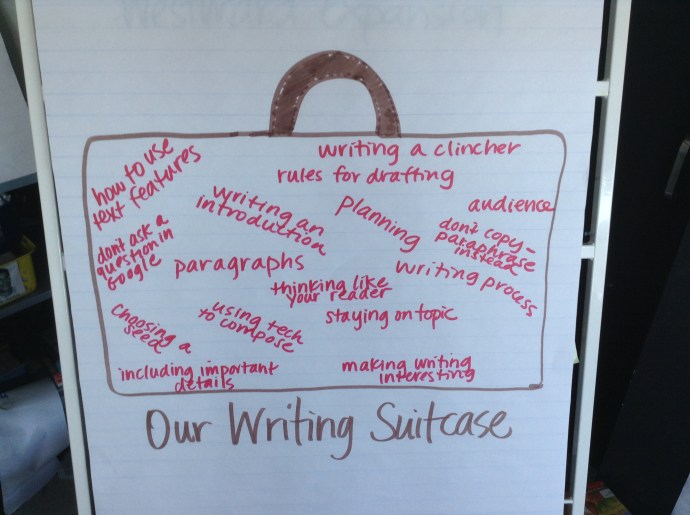 Westward Expansion
how to use
text features
writing a clincher
rules for drafting
writing an
introduction
planning
audience
don't copy-
paraphrase
instead
dont ask a
question in
Google
paragraphs
thinking like
your reader
writing process
choosing a
seed
using tech
to compose
staying on topic
including important
details
making writing
interesting
Our Writing Suitcase